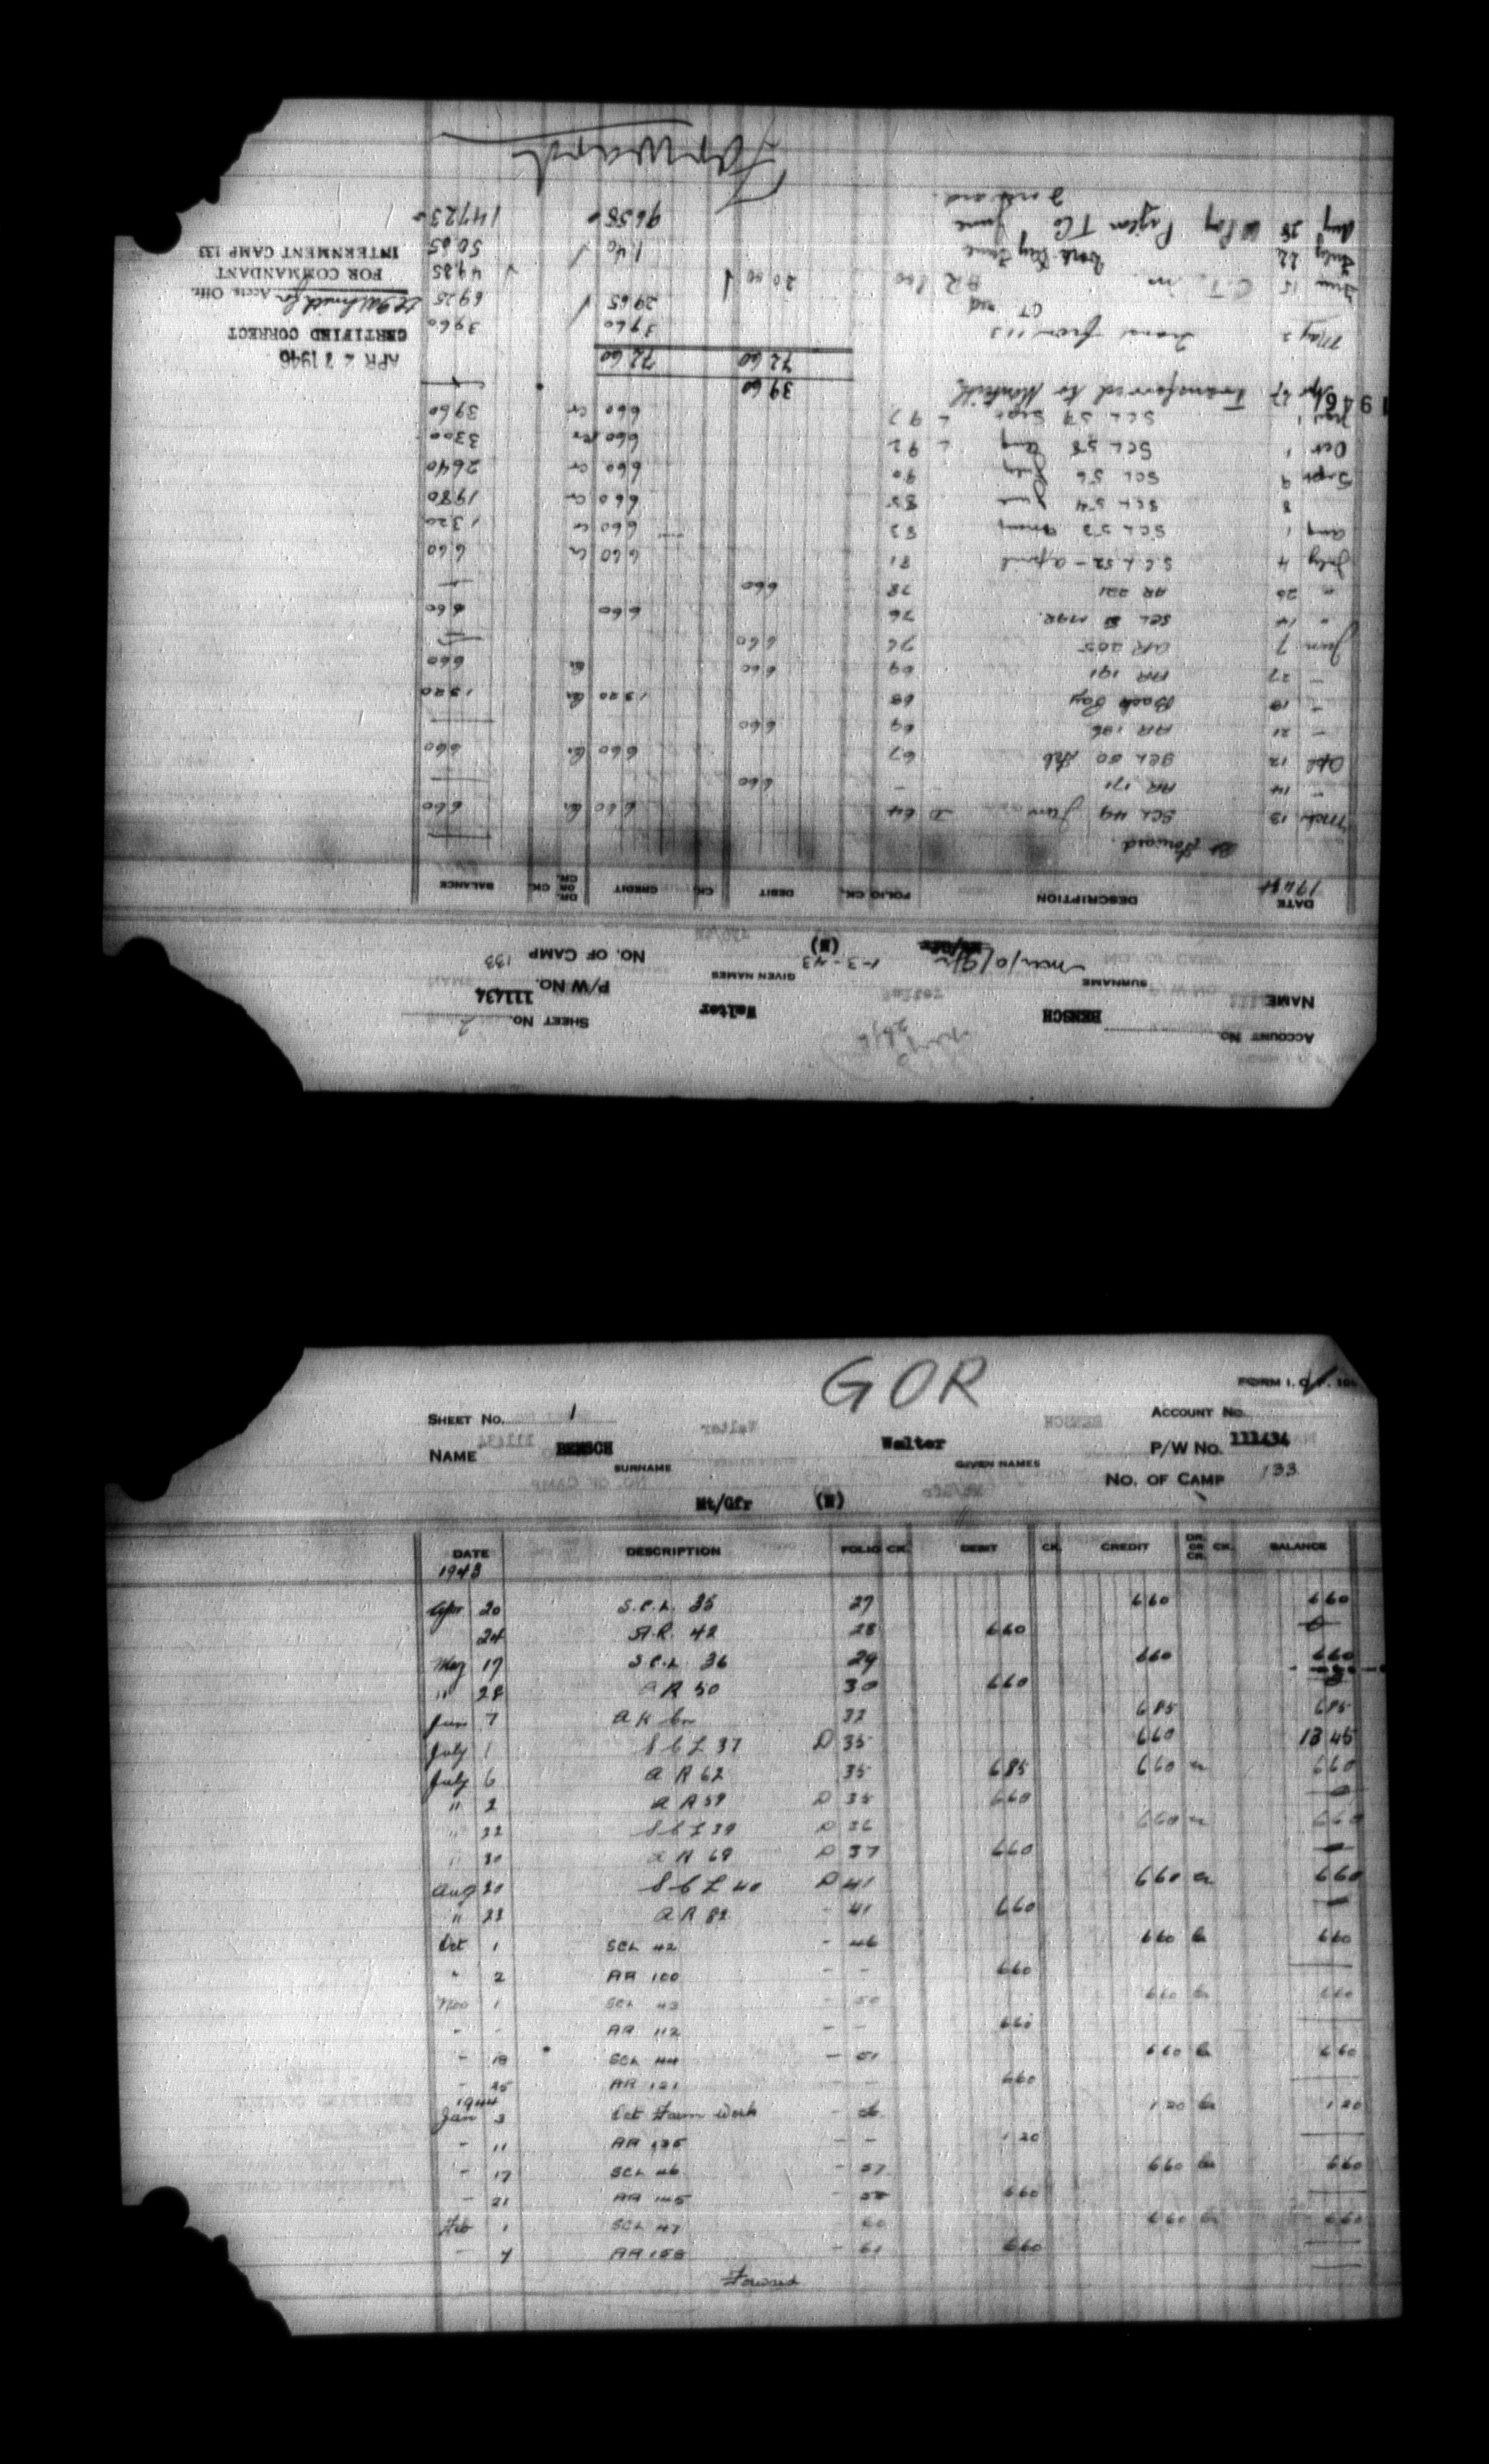 GOR
FORM I. O.
SHEET No. 1 ACCOUNT No.
NAME BENSCH Walter P/W No. 111434
SURNAME GIVEN NAMES
No. OF CAMP 133
Mt/Gfr (N)
DATE DESCRIPTION FOLIO CK. DEBIT CK. CREDIT DR. OR CR. CK. BALANCE
1943
Apr 20 S.C.L. 35 27 660 660
24 A.R. 42 28 660
May 17 S.C.L. 36 29 660 660
" 28 A R 50 30 660
Jun 7 685 685
July 1 S C L 37 D 35 660 1345
July 6 A R 62 35 685 660 cr 660
" 2 A R 59 D 35 660
" 22 S C L 39 D 36 660 cr 660
" 30 A R 69 D 37 660
Aug 20 S C L 40 D 41 660 cr 660
" 23 A R 82 - 41 660
Oct 1 SCL 42 - 46 660 Cr 660
" 2 AR 100 - - 660
Nov 1 SCL 43 - 50 660 Cr 660
- - AR 112 - - 660
- 18 SCL 44 - 51 660 Cr 660
- 25 AR 121 - - 660
1944
Jan 3 Oct Farm Work - 120 Cr 120
- 11 AR 135 - - 120
- 17 SCL 46 - 57 660 Cr 660
- 21 AR 145 - 58 660
Feb 1 SCL 47 - 60 660 Cr 660
- 7 AR 158 - 61 660
Forward
ACCOUNT No. SHEET No. 2
NAME BENSCH Walter P/W No. 111434
SURNAME GIVEN NAMES
1-3-43 (N) NO. OF CAMP 133
DATE DESCRIPTION FOLIO CK. DEBIT CK. CREDIT DR. OR CR. CK. BALANCE
1944
Bt Forward.
Mch 13 SCL 49 Jan D 64 660 Cr 660
- 14 AR 171 - - 660
Apl 12 SCL 50 Feb 67 660 Cr 660
- 21 AR 186 69 660
- 18 Back Pay 68 1320 Cr 1320
- 27 AR 191 69 660 Cr 660
Jun 7 AR 205 76 660
" 14 SCL 51 MAR. 76 660 660
" 20 AR 221 78 660
July 4 S.C.L 52 - April 81 660 Cr 660
Aug 1 SCL 53 83 660 cr 1320
8 SCL 54 June 85 660 Cr 1980
Sept 9 SCL 56 July 90 660 cr 2640
Oct 1 SCL 58 Aug L 92 660 cr 3300
Nov 1 SCL 59 Sept L 97 660 cr 3960
1946 Apr 27 Transferred to 3960
7260 7260
APR 27 1946
May 2 Trans from 133 3960 3960
CERTIFIED CORRECT
2965 6925
Accts. Offr.
Jun 15 C.T. 2000 4925
FOR COMMANDANT
July 22 Work Pay June 140 5065
INTERNMENT CAMP 133
Aug 28 Pay TC June 9658 14723
Forward